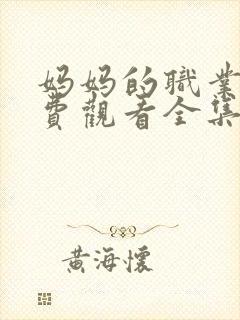 妈妈的職業
費觀看全集
黄海懷